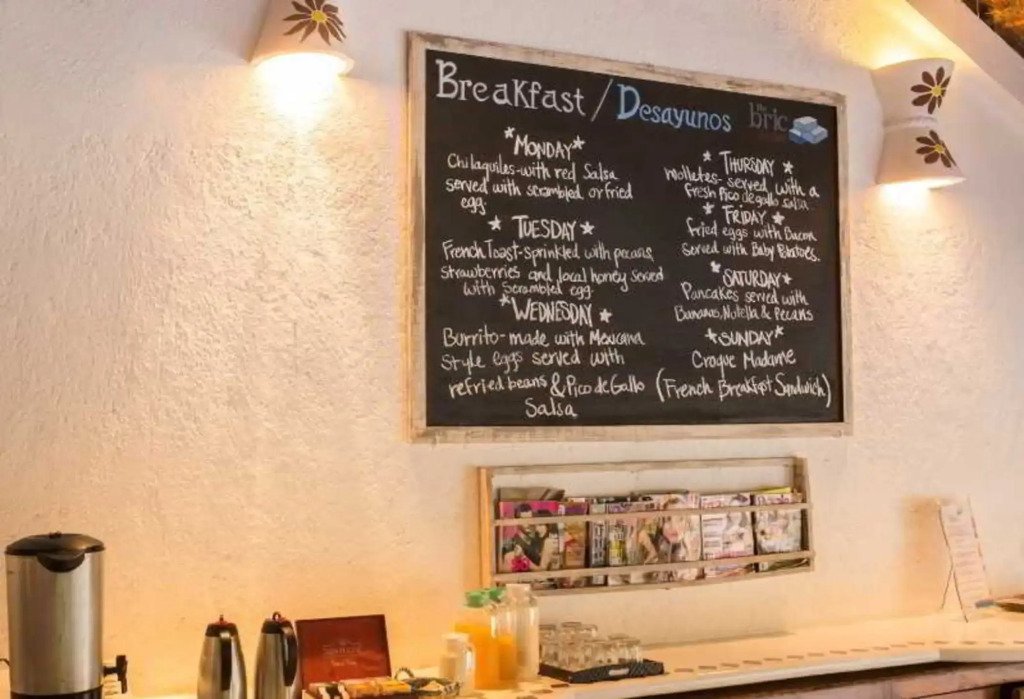 Breakfast / Desayunos
the bric
*MONDAY*
Chilaquiles-with red Salsa
served with scrambled or fried
egg.
* TUESDAY *
French Toast-sprinkled with pecans,
strawberries and local honey served
with scrambled egg.
*WEDNESDAY *
Burrito-made with Mexicana
Style eggs served with
refried beans & Pico de Gallo
Salsa
* THURSDAY *
Molletes-served with a
fresh Pico de gallo salsa.
* FRIDAY *
fried eggs with Bacon
served with Baby Potatoes.
*SATURDAY*
Pancakes served with
Bananas, Nutella & Pecans
*SUNDAY*
Croque Madame
(French Breakfast Sandwich)